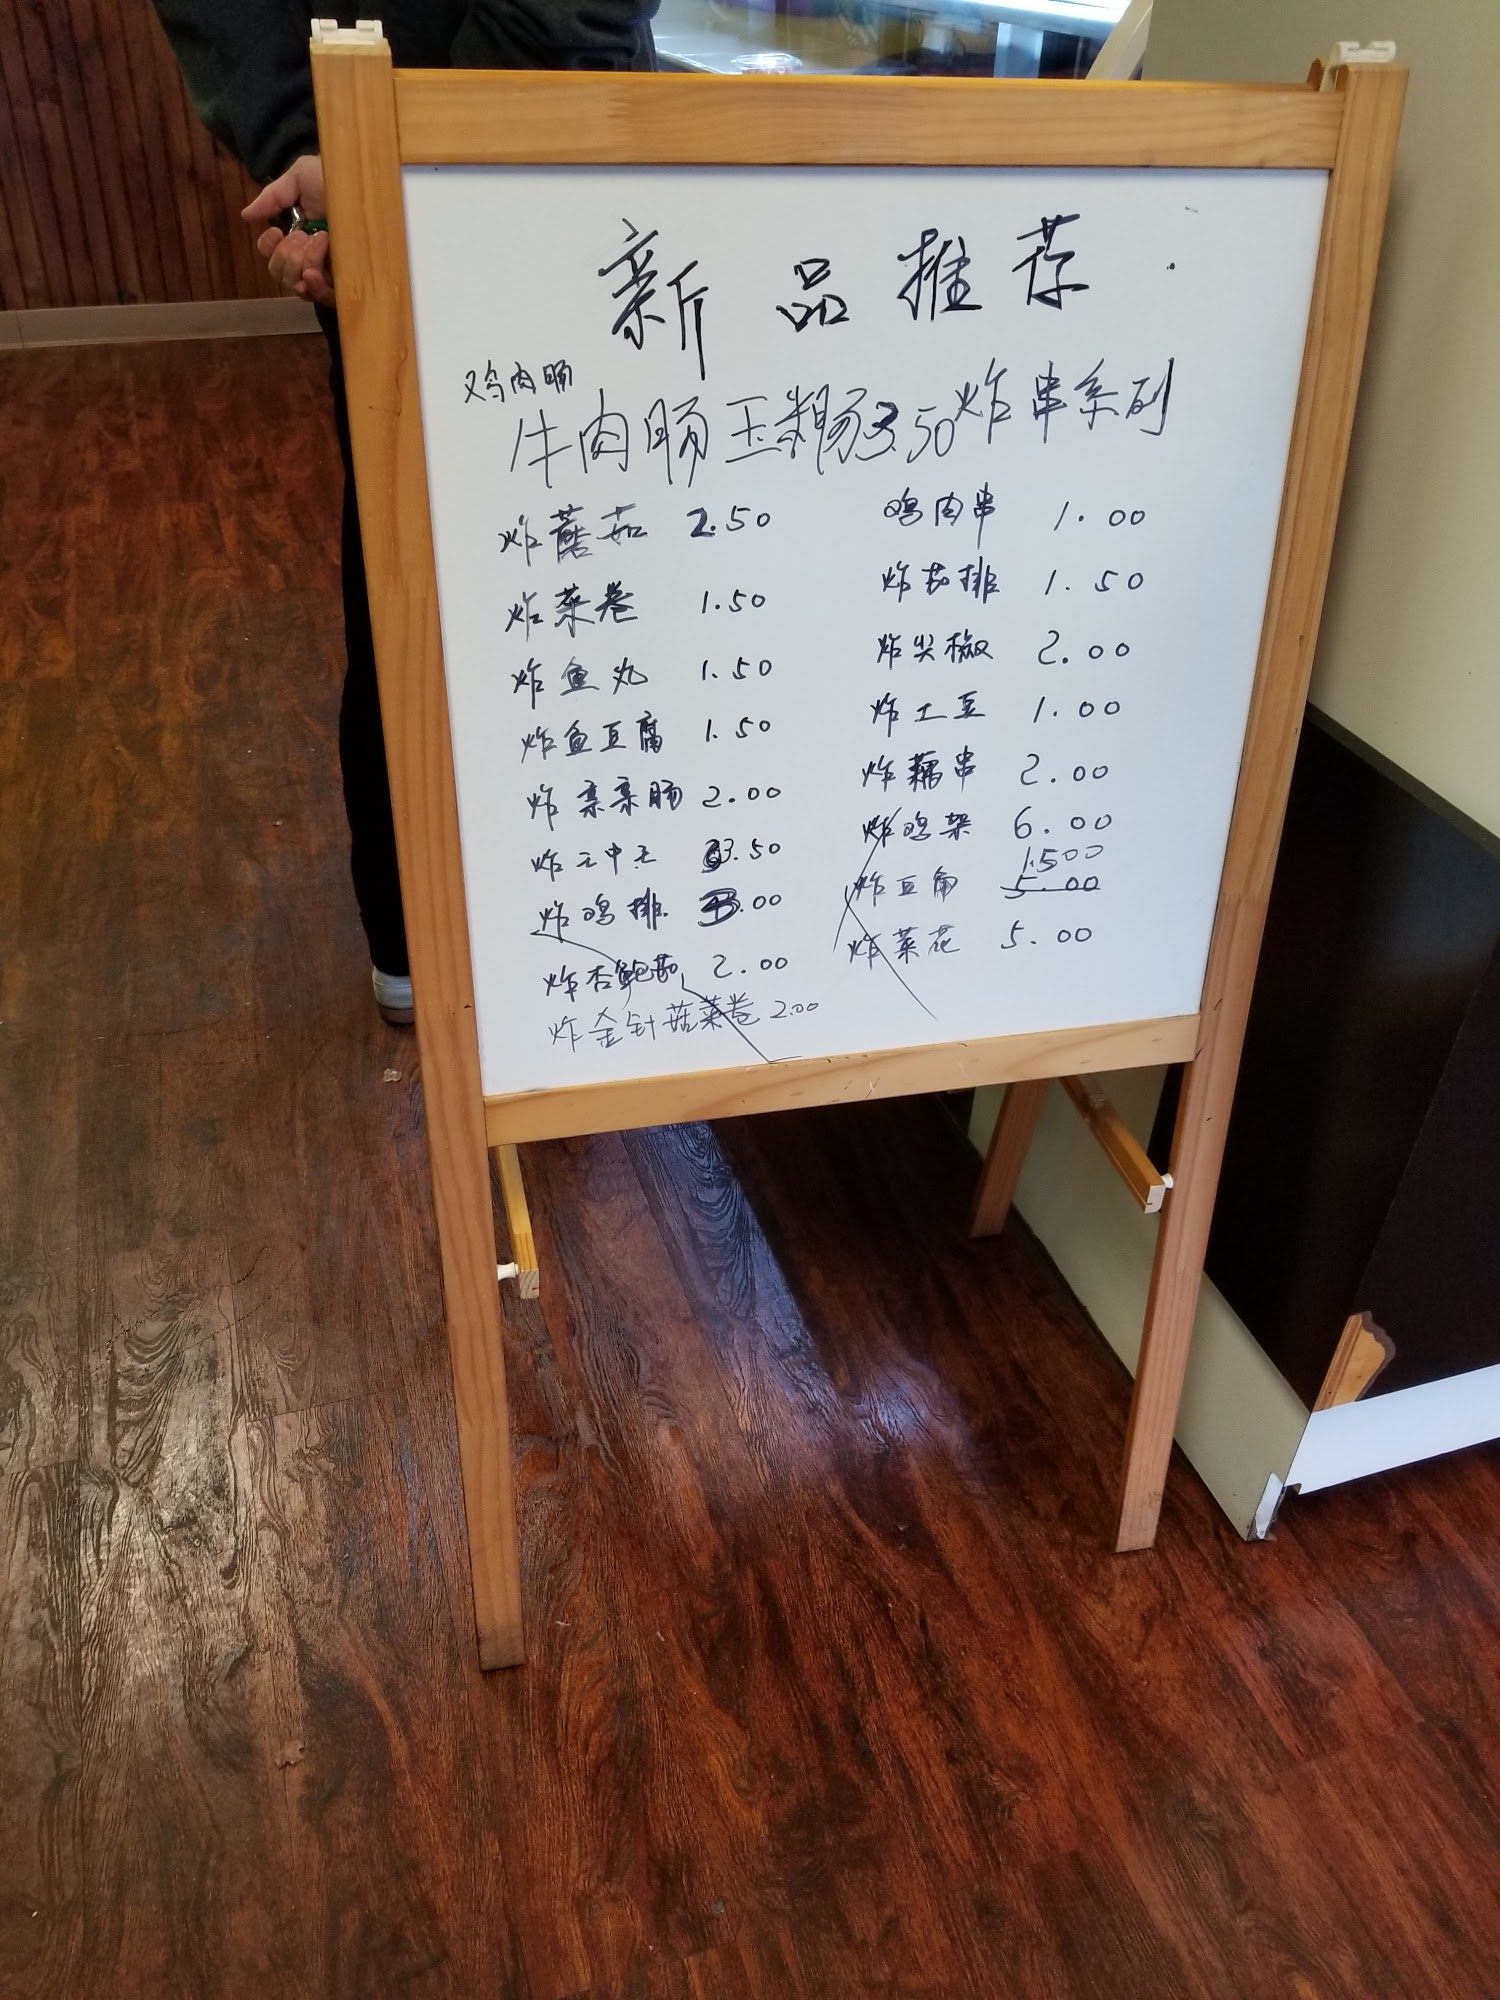 新品推荐
鸡肉肠
牛肉肠 玉米肠 3.50 炸串系列
炸蘑茹 2.50
炸菜卷 1.50
炸鱼丸 1.50
炸鱼豆腐 1.50
炸亲亲肠 2.00
炸王中王 3.50
炸鸡排 3.00
炸杏鲍菇 2.00
炸金针菇菜卷 2.00
鸡肉串 1.00
炸排 1.50
炸尖椒 2.00
炸土豆 1.00
炸藕串 2.00
炸鸡架 6.00
1.500
炸豆角 5.00
炸菜花 5.00